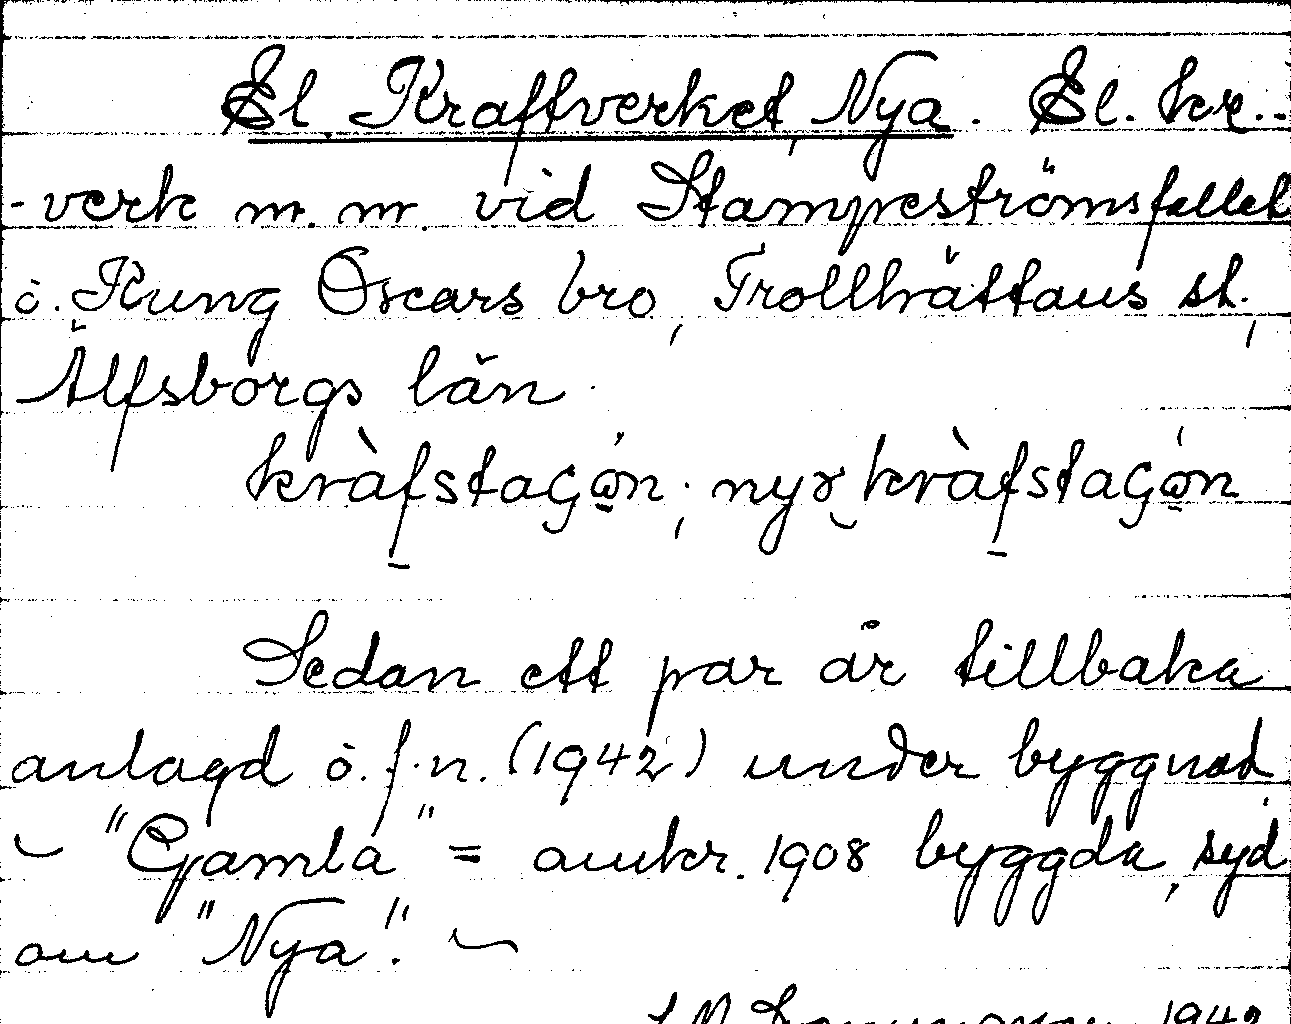 El. Kraftverket, Nya. El. kr..
-verk m. m. vid Stampeströmsfallet
o. Kung Oscars bro, Trollhättans st.,
Älfsborgs län.
kràfstaɢớn; nyɤ kràfstaɢớn
Sedan ett par år tillbaka
anlagd o. f. n. (1942) under byggnad
~ "Gamla" = omkr. 1908 byggda, syd
om "Nya". ~
1942